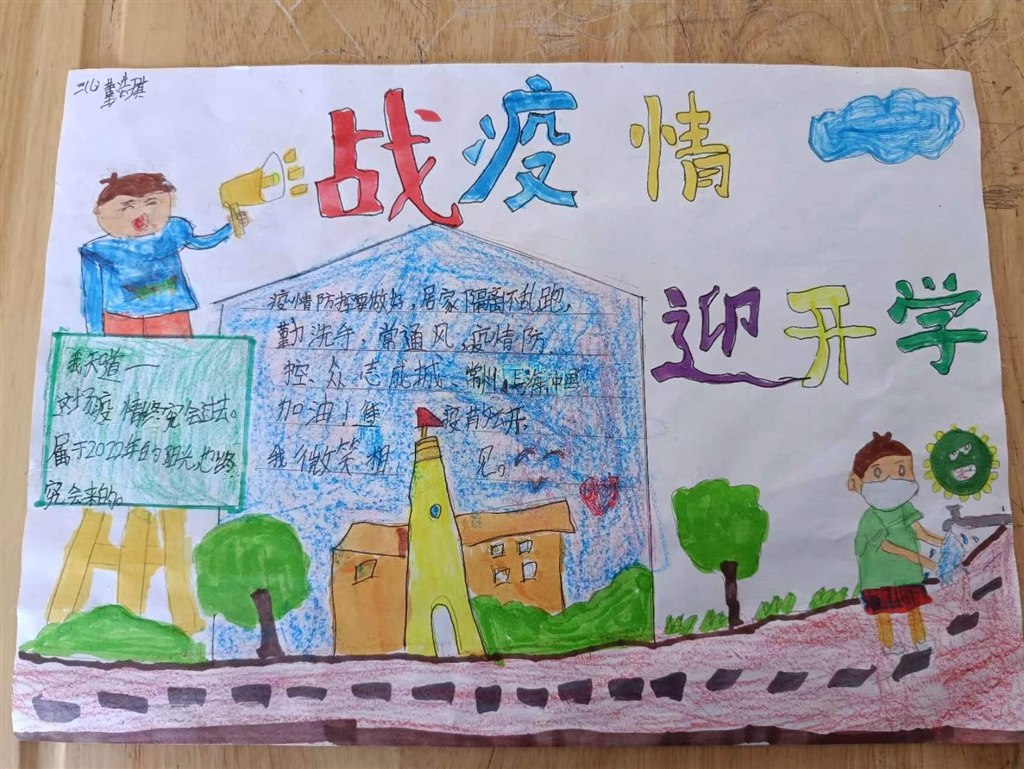 战疫情
迎开学
疫情防控要做好，居家隔离不乱跑，
勤洗手，常通风，疫情防
控、众志成城、常州、上海中国
加油！待 疫有公开，
我微笑相 见。
我知道——
这场疫情终究会过去。
属于2022年的阳光也终
究会来的。